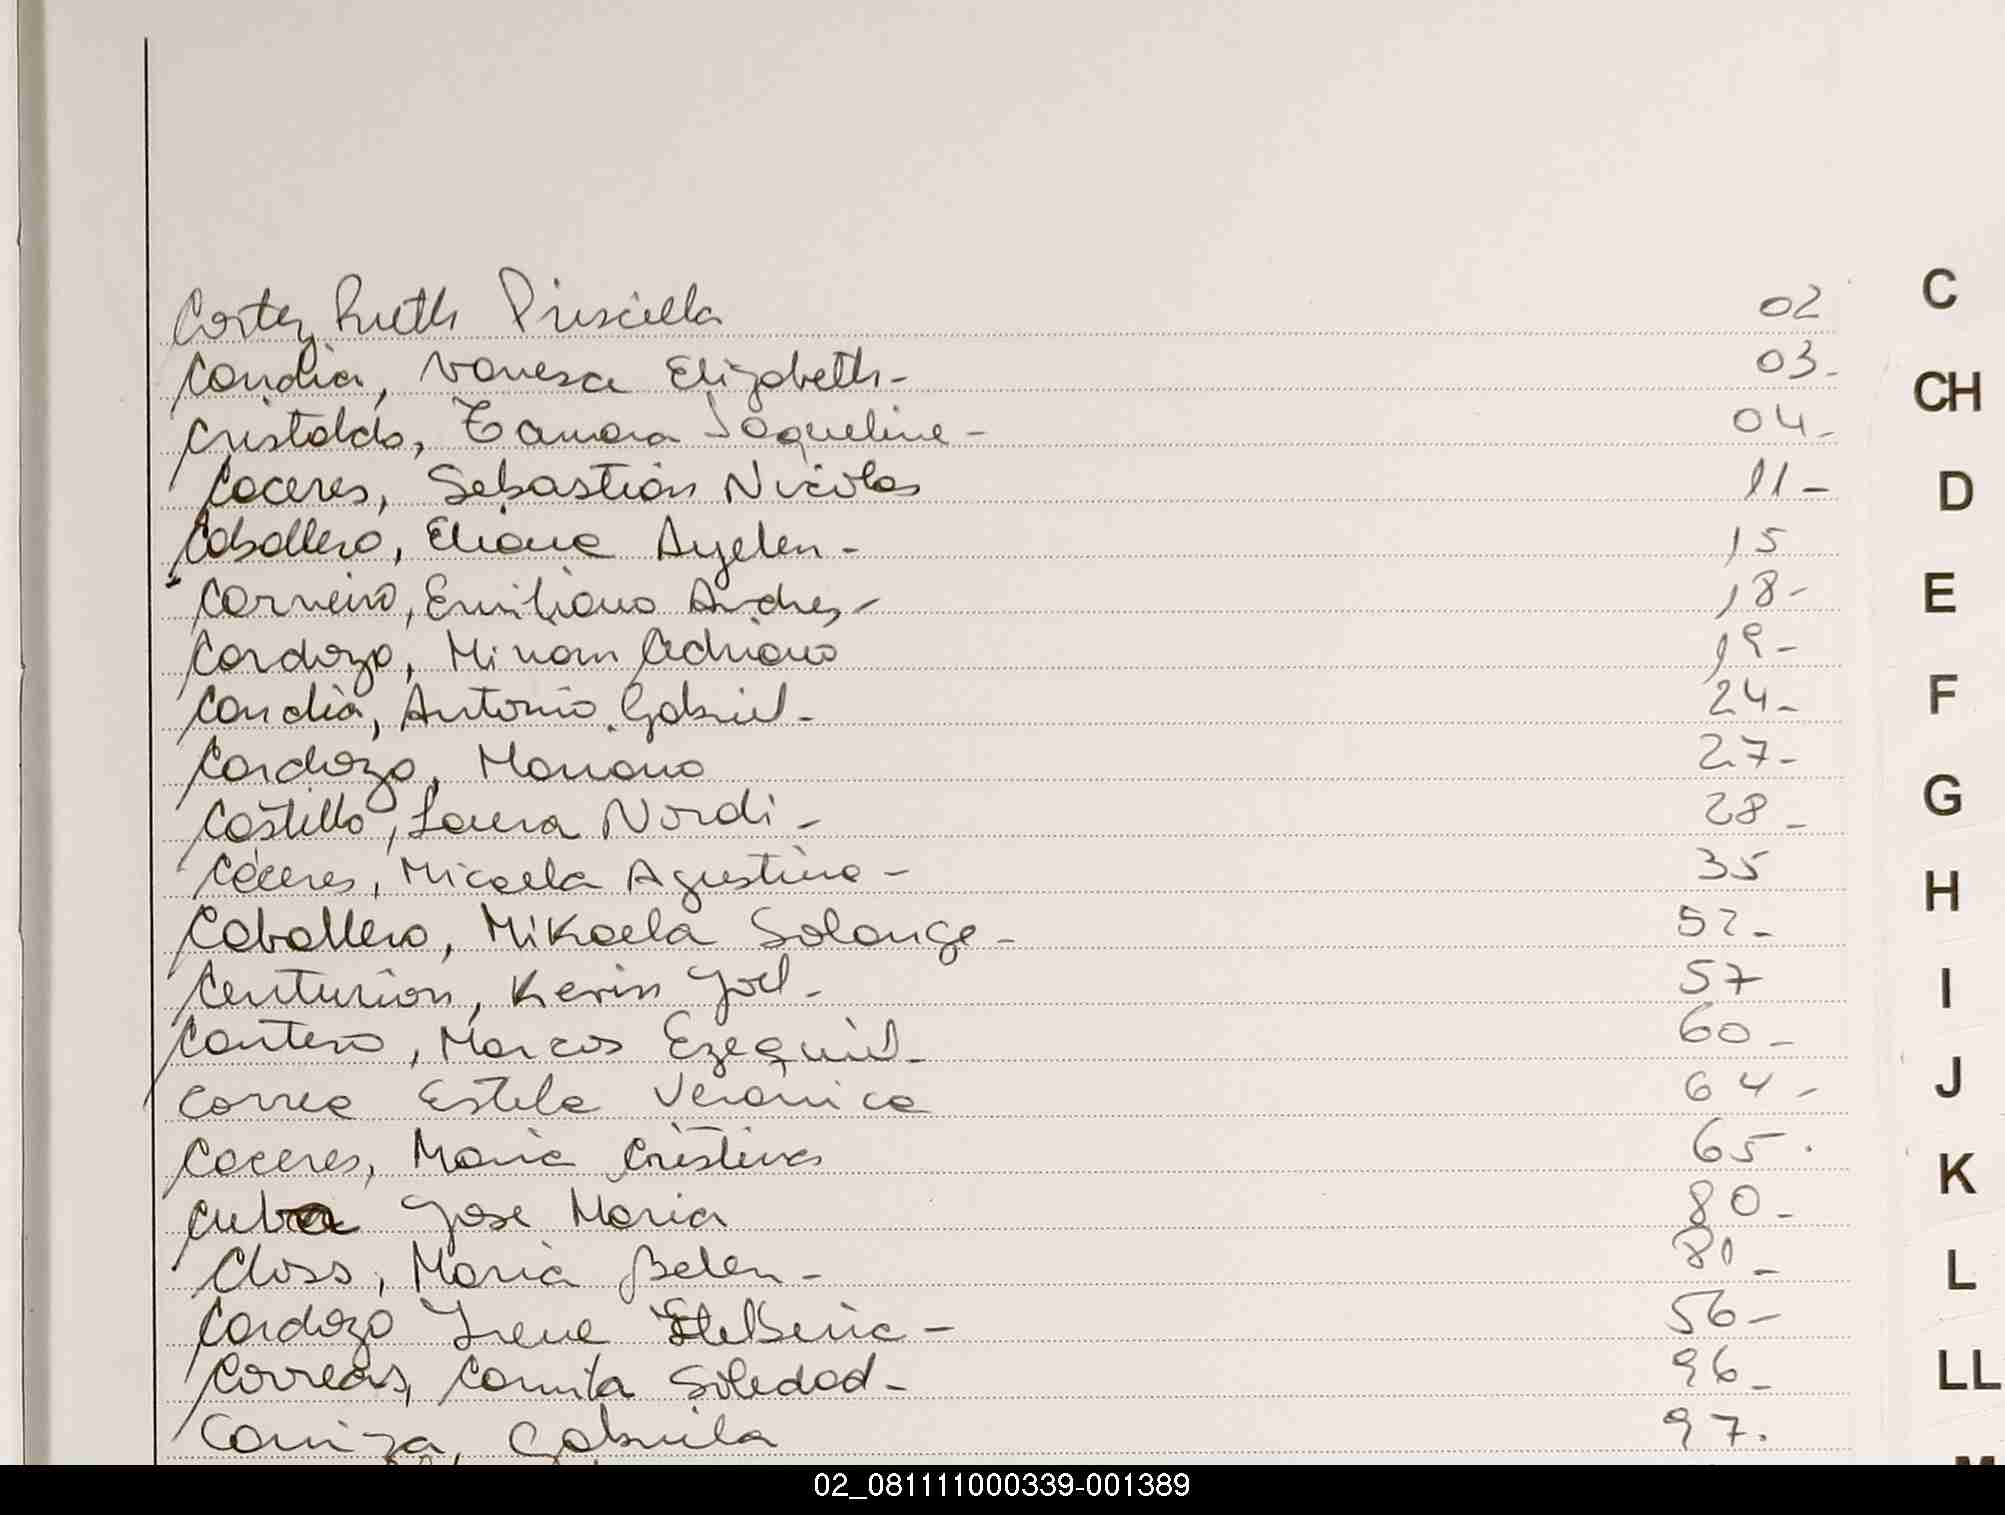 Cortez Ruth Priscilla 02
Candia, Vanesa Elizabeth- 03-
Cristaldo, Tamara Jaqueline- 04-
Caceres, Sebastián Nicolas 11-
Caballero, Eliana Ayelen- 15
Carneiro, Emiliano Andres- 18-
Cardozo, Miriam Adriana 19-
Candia, Antonio Gabriel- 24-
Cardozo, Mariano 27-
Castillo, Laura Nardi- 28-
Cáceres, Micaela Agustina- 35
Caballero, Mikaela Solange- 52-
Centurion, Kevin Joel- 57
Cantero, Marcos Ezequiel- 60-
Correa Estela Veronica 64-
Caceres, Maria Cristina 65.
Cuba Jose Maria 80-
Closs, Maria Belen- 81-
Cardozo Irene - 56-
Correas, Camila Soledad- 96-
Gabriela 97.
C
CH
D
E
F
G
H
I
J
K
L
LL
M
02_081111000339-001389